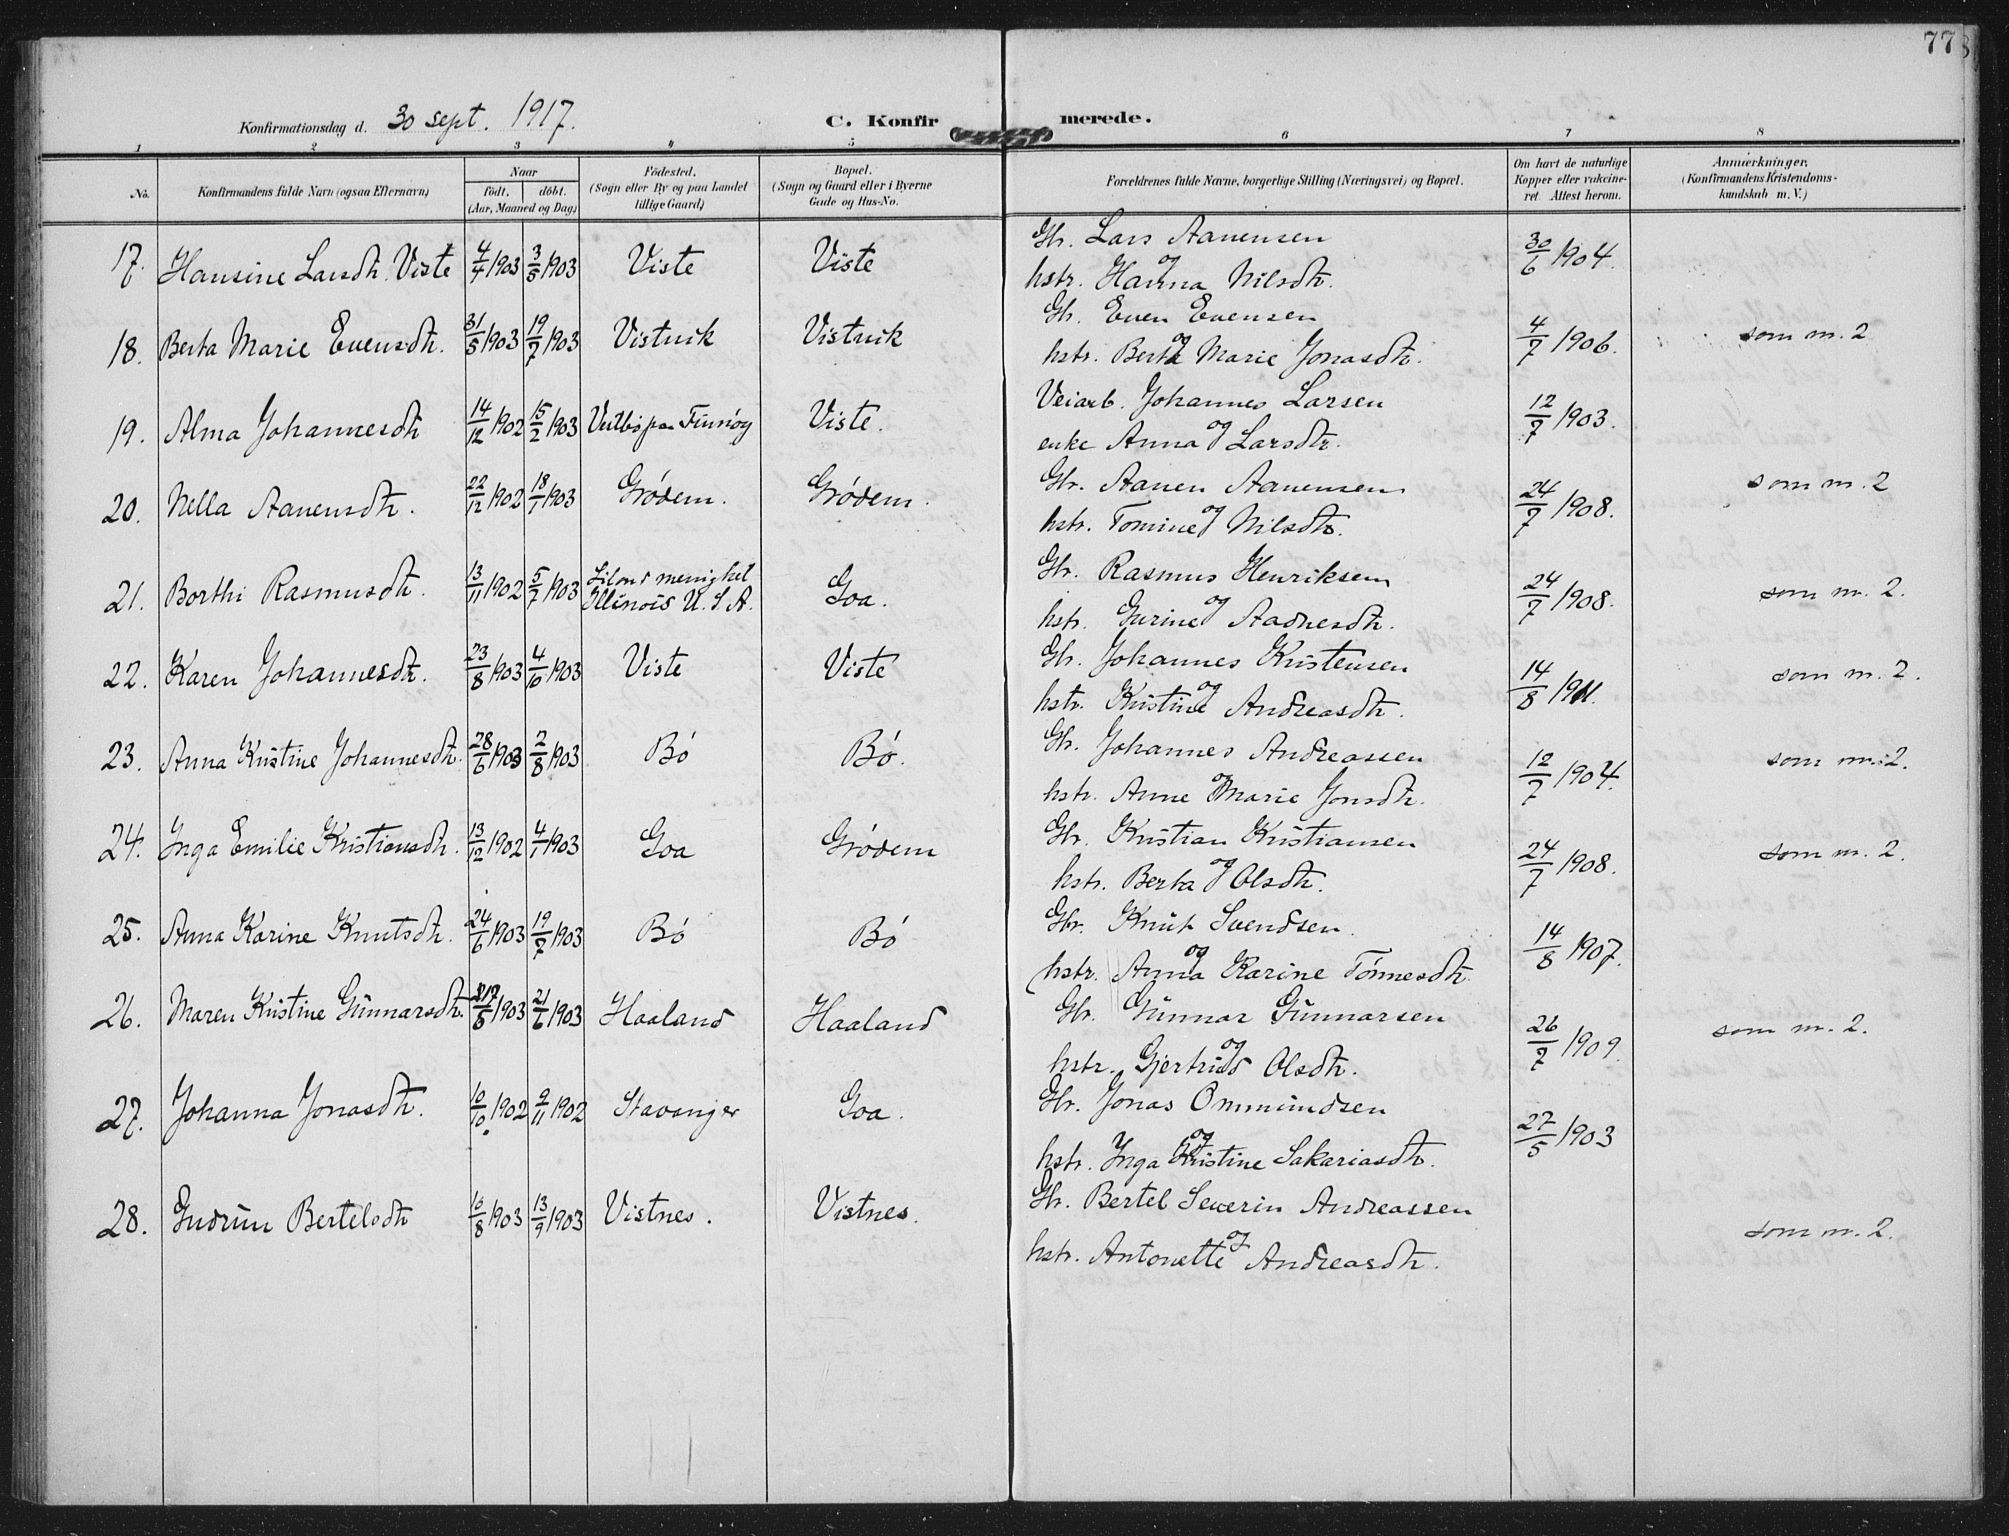 77
Konfirmationsdag d. 30 sept. 1917. C. Konfirmerede.
1 2 3 4 5 6 7 8
No. Konfirmandens fulde Navn (ogsaa Efternavn) Naar født. døbt. (Aar, Maaned og Dag) Fødested. (Sogn eller By og paa Landet tillige Gaard) Bopæl. (Sogn og Gaard eller i Byerne Gade og Hus-No. Forældrenes fulde Navne, borgerlige Stilling (Næringsvei) og Bopæl. Om havt de naturlige Kopper eller vaccineret. Attest herom. Anmærkninger. (Konfirmandens Kristendomskundskab m. V.)
17. Hansine Larsdtr. Viste 4/4 1903 3/5 1903 Viste Viste Gbr. Lars Aanensen
og hstr. Hanna Nilsdtr. 30/6 1904.
18. Berta Marie Evensdtr. 31/5 1903 19/7 1903 Vistvik Vistvik Gbr. Even Evensen
og hstr. Berta Marie Jonasdtr. 4/7 1906. som nr. 2
19. Alma Johannesdtr 14/12 1902 15/2 1903 paa Finnøy Viste. Veiarb. Johannes Larsen
og enke Anna Larsdtr. 12/7 1903.
20. Nella Aanensdtr. 22/12 1902 18/1 1903 Grødem. Grødem. Gbr. Aanen Aanensen
og hstr. Tomine Nilsdtr. 24/7 1908. som nr. 2
21. Borthi Rasmusdtr. 13/11 1902 5/7 1903 menighet
Illinois U. S. A. Goa. Gbr. Rasmus Henriksen
og hstr. Gurine Aadnesdtr. 24/7 1908. som nr. 2.
22. Karen Johannesdtr. 23/8 1903 4/10 1903 Viste Viste Gbr. Johannes Kristensen
og hstr. Kristine Andreasdtr. 14/8 1911. som nr. 2.
23. Anna Kristine Johannesdtr. 28/6 1903 2/8 1903 Bø Bø. Gbr. Johannes Andreassen
og hstr. Anne Marie Jonsdtr. 12/7 1904. som nr. 2.
24. Inga Emilie Kristiansdtr. 13/12 1902 4/1 1903 Goa Grødem Gbr. Kristian Kristiansen
og hstr. Berta Olsdtr. 24/7 1908. som nr. 2.
25. Anna Karine Knutsdtr. 24/6 1903 19/7 1903 Bø Bø Gbr. Knut Svendsen.
og hstr. Anna Karine Tønnesdtr. 14/8 1907.
26. Maren Kristine Gunnarsdtr. /5 1903 21/6 1903 Haaland Haaland Gbr. Gunnar Gunnarsen
og hstr. Gjertrud Olsdtr. 26/7 1909. som nr. 2.
27. Johanna Jonasdtr. 10/10 1902 9/11 1902 Stavanger Goa. Gbr. Jonas Ommundsen
og hstr. Inga Kristine Sakariasdtr. 27/5 1903
28. Gudrun Bertelsdtr 10/8 1903 13/9 1903 Vistnes. Vistnes. Gbr. Bertel Severin Andreassen
og hstr. Antonette Andreasdtr. som nr. 2.